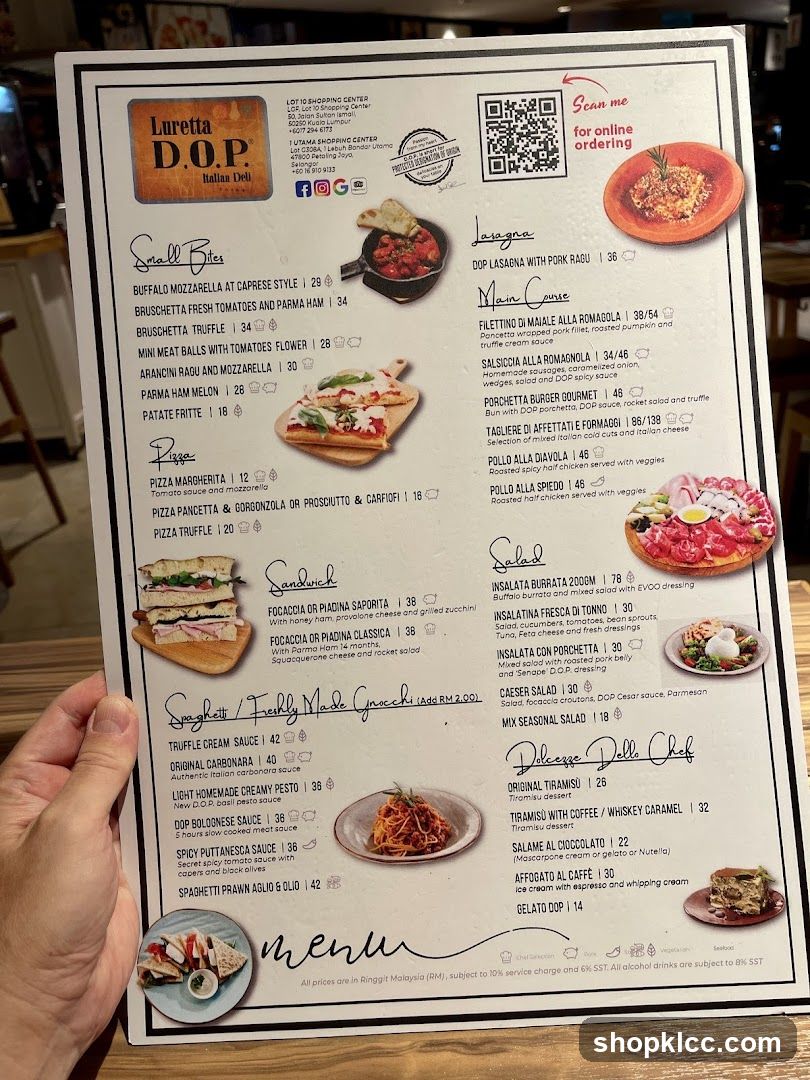 Luretta
D.O.P.
Italian Deli
LOT 10 SHOPPING CENTER
LGF, Lot 10 Shopping Center
50, Jalan Sultan Ismail,
50250 Kuala Lumpur
+6017 294 6173
1 UTAMA SHOPPING CENTER
Lot G308A, 1 Lebuh Bandar Utama
47800 Petaling Jaya,
Selangor
+60 16 910 9133
Passion
from my heart
D.O.P. is short for
PROTECTED DESIGNATION OF ORIGIN
delicacies on
your table
Scan me
for online
ordering
Small Bites
BUFFALO MOZZARELLA AT CAPRESE STYLE | 29
BRUSCHETTA FRESH TOMATOES AND PARMA HAM | 34
BRUSCHETTA TRUFFLE | 34
MINI MEAT BALLS WITH TOMATOES FLOWER | 28
ARANCINI RAGU AND MOZZARELLA | 30
PARMA HAM MELON | 28
PATATE FRITTE | 18
Pizza
PIZZA MARGHERITA | 12
Tomato sauce and mozzarella
PIZZA PANCETTA & GORGONZOLA OR PROSCIUTTO & CARFIOFI | 16
PIZZA TRUFFLE | 20
Sandwich
FOCACCIA OR PIADINA SAPORITA | 38
With honey ham, provolone cheese and grilled zucchini
FOCACCIA OR PIADINA CLASSICA | 36
With Parma Ham 14 months,
Squacquerone cheese and rocket salad
Spaghetti / Freshly Made Gnocchi (Add RM 2.00)
TRUFFLE CREAM SAUCE | 42
ORIGINAL CARBONARA | 40
Authentic Italian carbonara sauce
LIGHT HOMEMADE CREAMY PESTO | 36
New D.O.P. basil pesto sauce
DOP BOLOGNESE SAUCE | 38
5 hours slow cooked meat sauce
SPICY PUTTANESCA SAUCE | 36
Secret spicy tomato sauce with
capers and black olives
SPAGHETTI PRAWN AGLIO & OLIO | 42
Lasagna
DOP LASAGNA WITH PORK RAGU | 36
Main Course
FILETTINO DI MAIALE ALLA ROMAGOLA | 38/54
Pancetta wrapped pork fillet, roasted pumpkin and
truffle cream sauce
SALSICCIA ALLA ROMAGNOLA | 34/46
Homemade sausages, caramelized onion,
wedges, salad and DOP spicy sauce
PORCHETTA BURGER GOURMET | 46
Bun with DOP porchetta, DOP sauce, rocket salad and truffle
TAGLIERE DI AFFETTATI E FORMAGGI | 86/138
Selection of mixed Italian cold cuts and Italian cheese
POLLO ALLA DIAVOLA | 46
Roasted spicy half chicken served with veggies
POLLO ALLA SPIEDO | 46
Roasted half chicken served with veggies
Salad
INSALATA BURRATA 200GM | 78
Buffalo burrata and mixed salad with EVOO dressing
INSALATINA FRESCA DI TONNO | 30
Salad, cucumbers, tomatoes, bean sprouts,
Tuna, Feta cheese and fresh dressings
INSALATA CON PORCHETTA | 30
Mixed salad with roasted pork belly
and 'Senape' D.O.P. dressing
CAESER SALAD | 30
Salad, focaccia croutons, DOP Cesar sauce, Parmesan
MIX SEASONAL SALAD | 18
Dolcezze Dello Chef
ORIGINAL TIRAMISÙ | 26
Tiramisu dessert
TIRAMISÙ WITH COFFEE / WHISKEY CARAMEL | 32
Tiramisu dessert
SALAME AL CIOCCOLATO | 22
(Mascarpone cream or gelato or Nutella)
AFFOGATO AL CAFFÈ | 30
Ice cream with espresso and whipping cream
GELATO DOP | 14
menu
Chef Selection Pork Vegetarian Seafood
All prices are in Ringgit Malaysia (RM), subject to 10% service charge and 6% SST. All alcohol drinks are subject to 8% SST
shopklcc.com